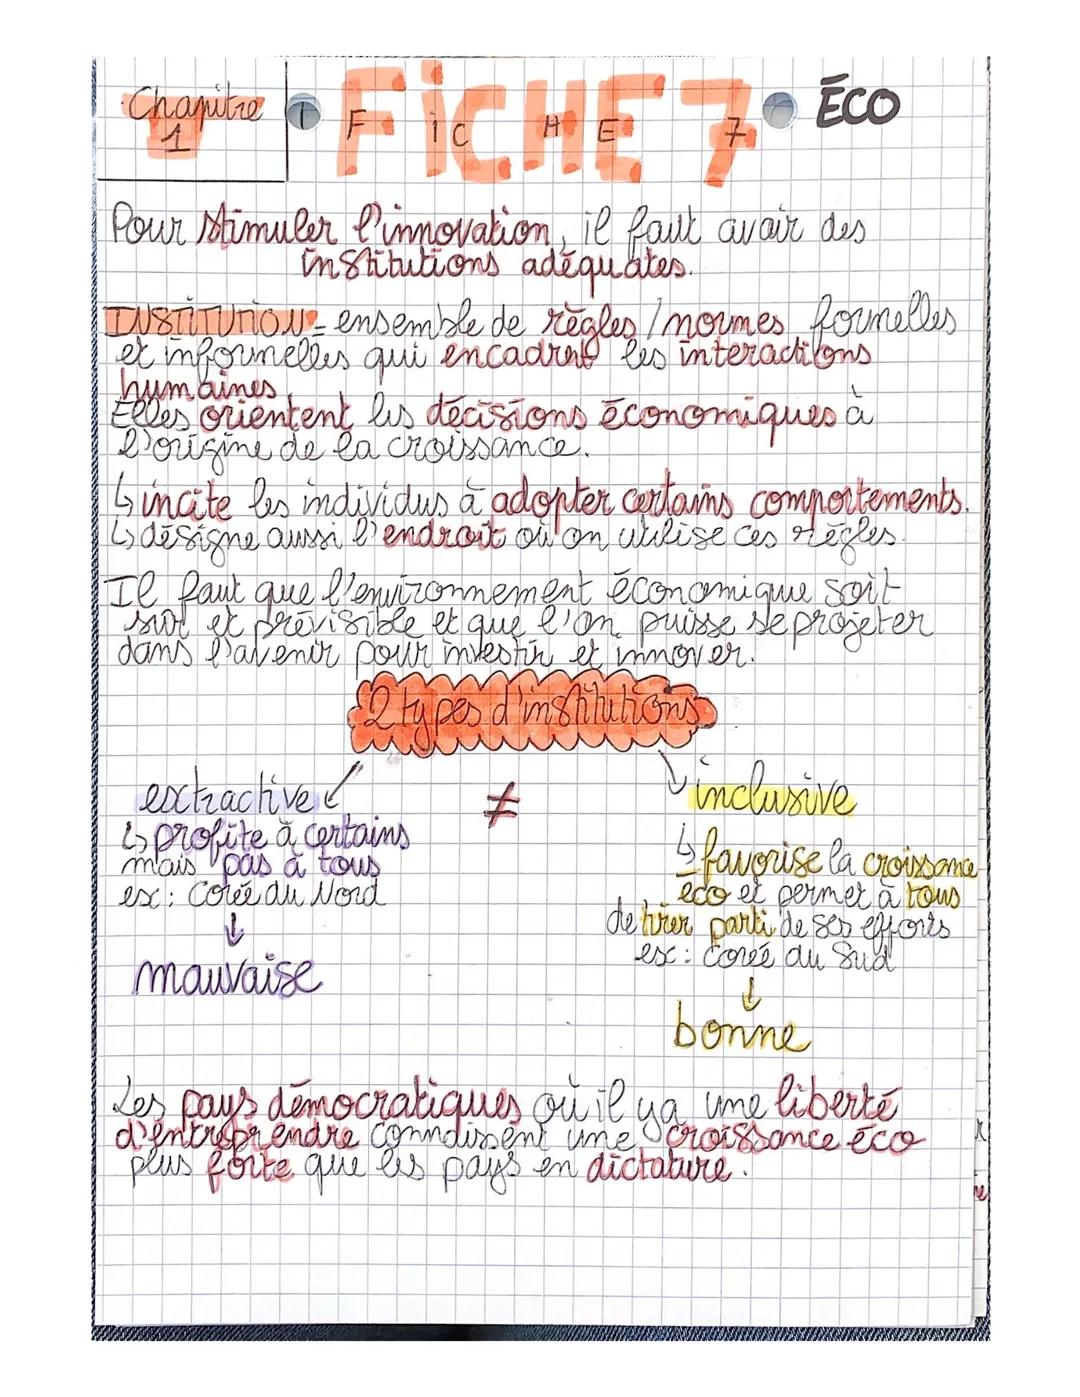 Chapitre
1
FiCHE 7
F i C H E 7
ÉCO
Pour stimuler l'innovation, il faut avoir des
institutions adéquates.
INSTITUTION = ensemble de règles / normes formelles
et informelles qui encadrent les interactions
humaines
Elles orientent les décisions économiques à
l'origine de la croissance.
↳ incite les individus à adopter certains comportements.
↳ désigne aussi l'endroit où on utilise ces règles.
Il faut que l'environnement économique soit
sûr et prévisible et que l'on puisse se projeter
dans l'avenir pour investir et innover.
2 types d'institutions
extractive
≠
inclusive
↳ profite à certains
mais pas à tous
ex : Corée du Nord
↓
mauvaise
↳ favorise la croissance
éco et permet à tous
de tirer parti de ses efforts
ex : Corée du Sud
↓
bonne
Les pays démocratiques où il y a une liberté
d'entreprendre connaissent une croissance éco
plus forte que les pays en dictature.